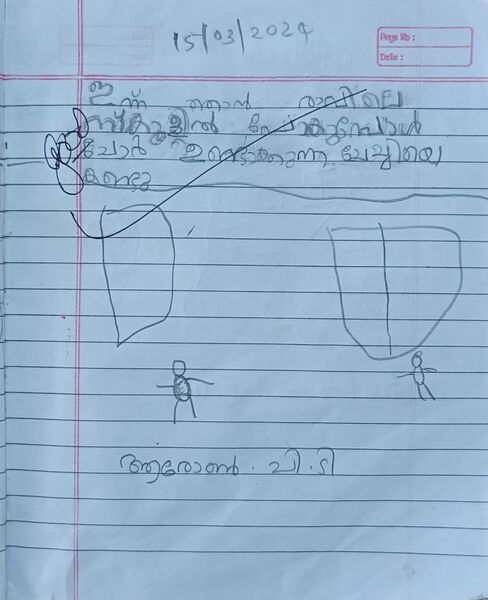 15/03/2024
Page No :
Date :
ഇന്ന് ഞാൻ രാവിലെ
സ്കൂളിൽ പോകുമ്പോൾ
ചോർ ഉണ്ടാക്കുന്ന ചേച്ചിയെ
കണ്ടു
ആരോൺ . വി . ടി